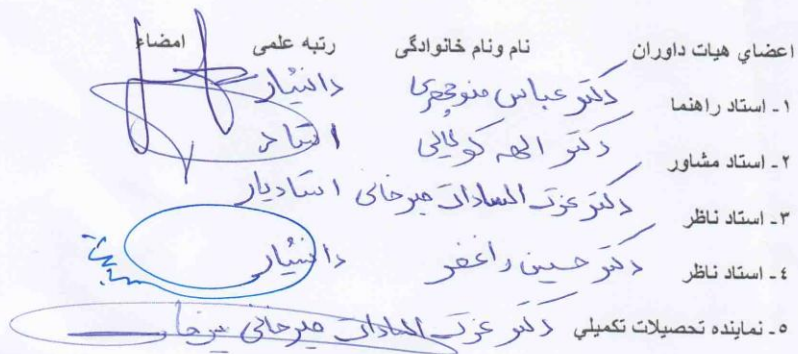 اعضاي هيات داوران نام ونام خانوادگی رتبه علمی امضاء
۱ـ استاد راهنما دکتر عباس منوچهری دانشیار
۲ـ استاد مشاور دکتر الهه کولایی استاد
۳ـ استاد ناظر دکتر عزت السادات میرخانی استادیار
٤ـ استاد ناظر دکتر حسین راغفر دانشیار
٥ـ نماينده تحصيلات تكميلي دکتر عزت السادات میرخانی